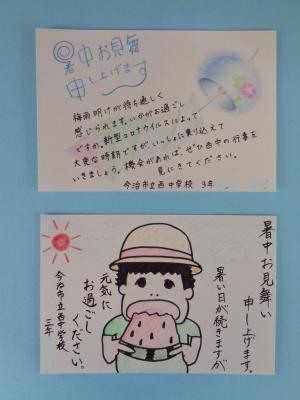 暑中お見舞
申し上げます
梅雨明けが待ち遠しく
感じられます。いかがお過ごし
ですか。新型コロナウイルスによって
大変な時期ですが、いっしょに乗り込えて
いきましょう。機会があれば、ぜひ西中の行事を
見にきてください。
今治市立西中学校 3年
暑中お見舞い
申し上げます。
暑い日が続きますが
元気に
お過ごし
ください。
今治市立西中学校
三年